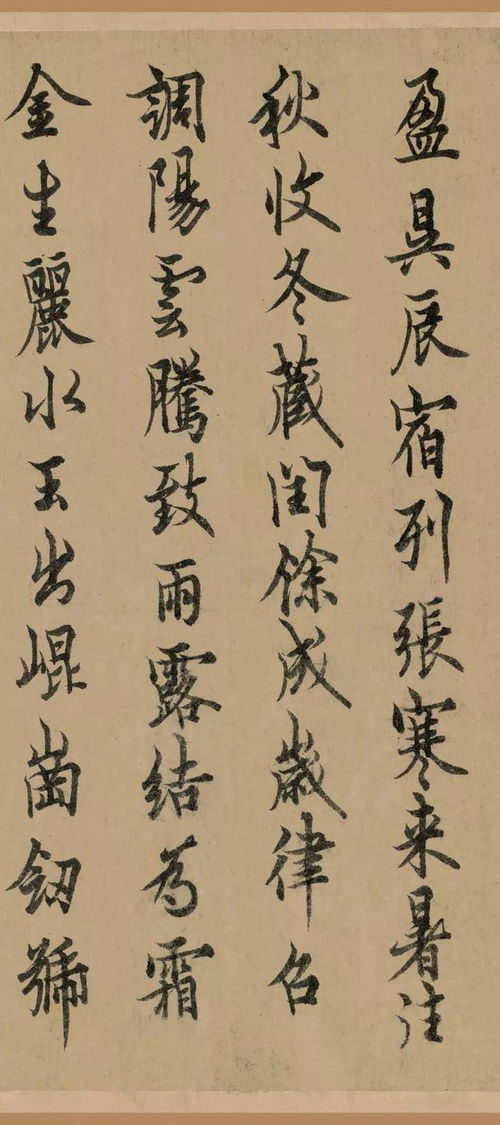 盈昃辰宿列張寒来暑往
秋收冬藏閏餘成歲律召
調陽雲騰致雨露結為霜
金生麗水玉出崐崗釼號